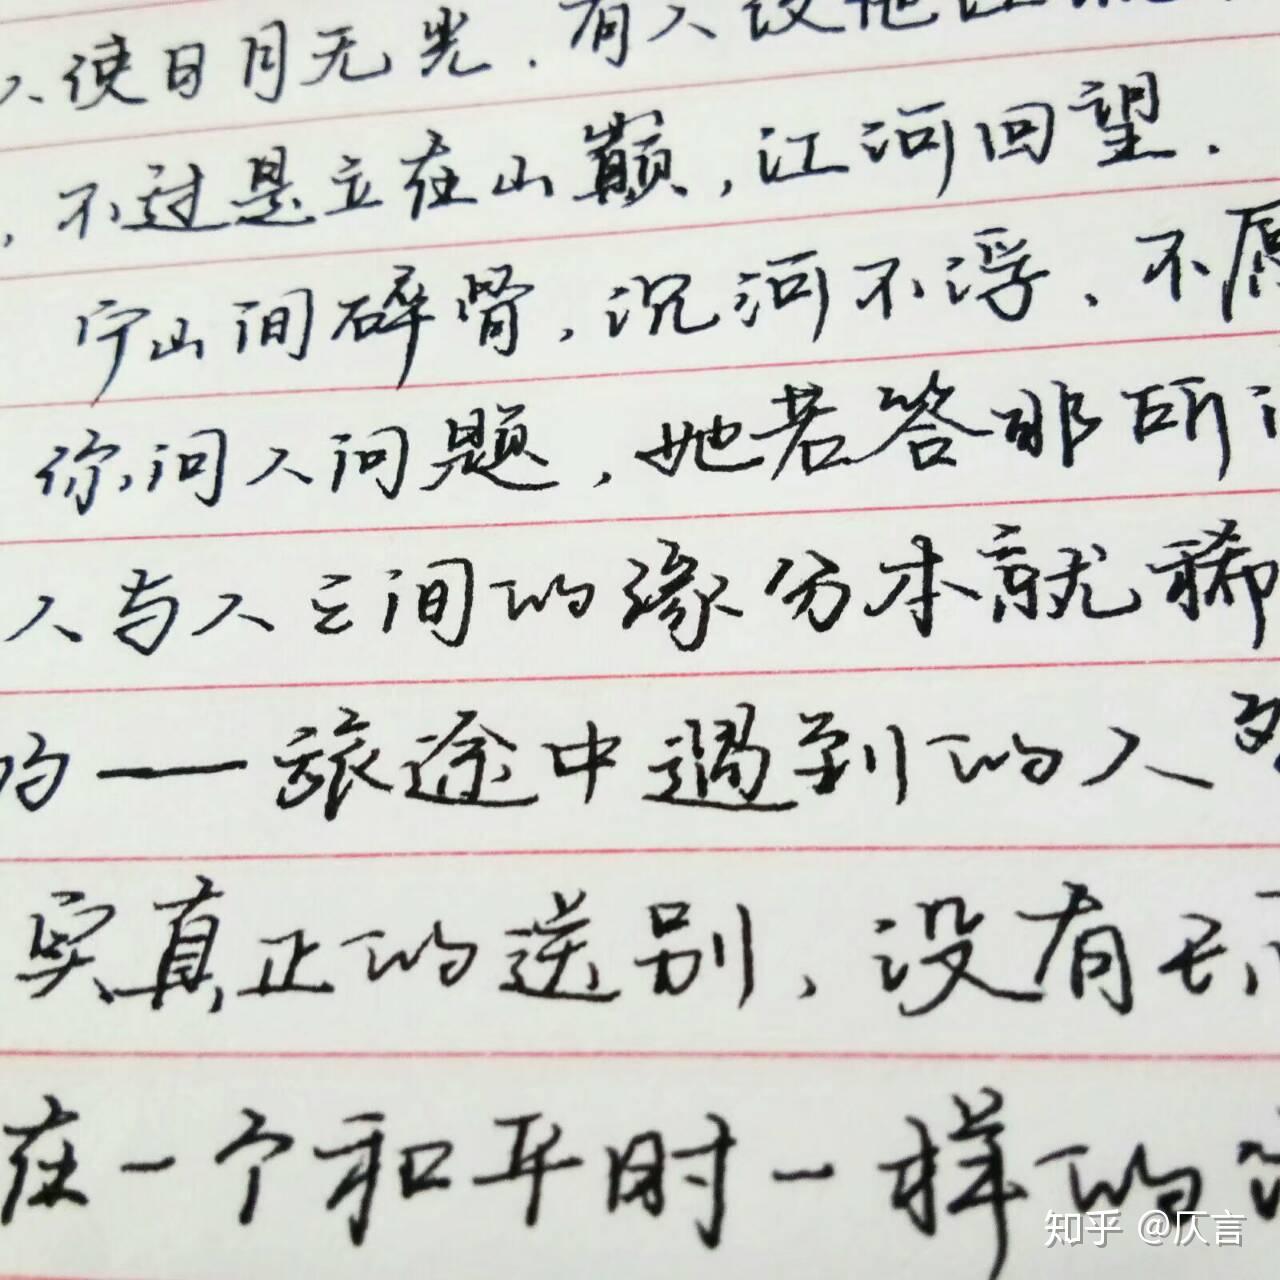 人使日月无光.有人没他
,不过是立在山巅,江河回望.
宁山间碎骨,沉河不浮、不愿
你问人问题,她若答非所
人与人之间的缘分本就稀
的——旅途中遇到的人
实真正的送别,没有长
在一个和平时一样的
知乎 @仄言